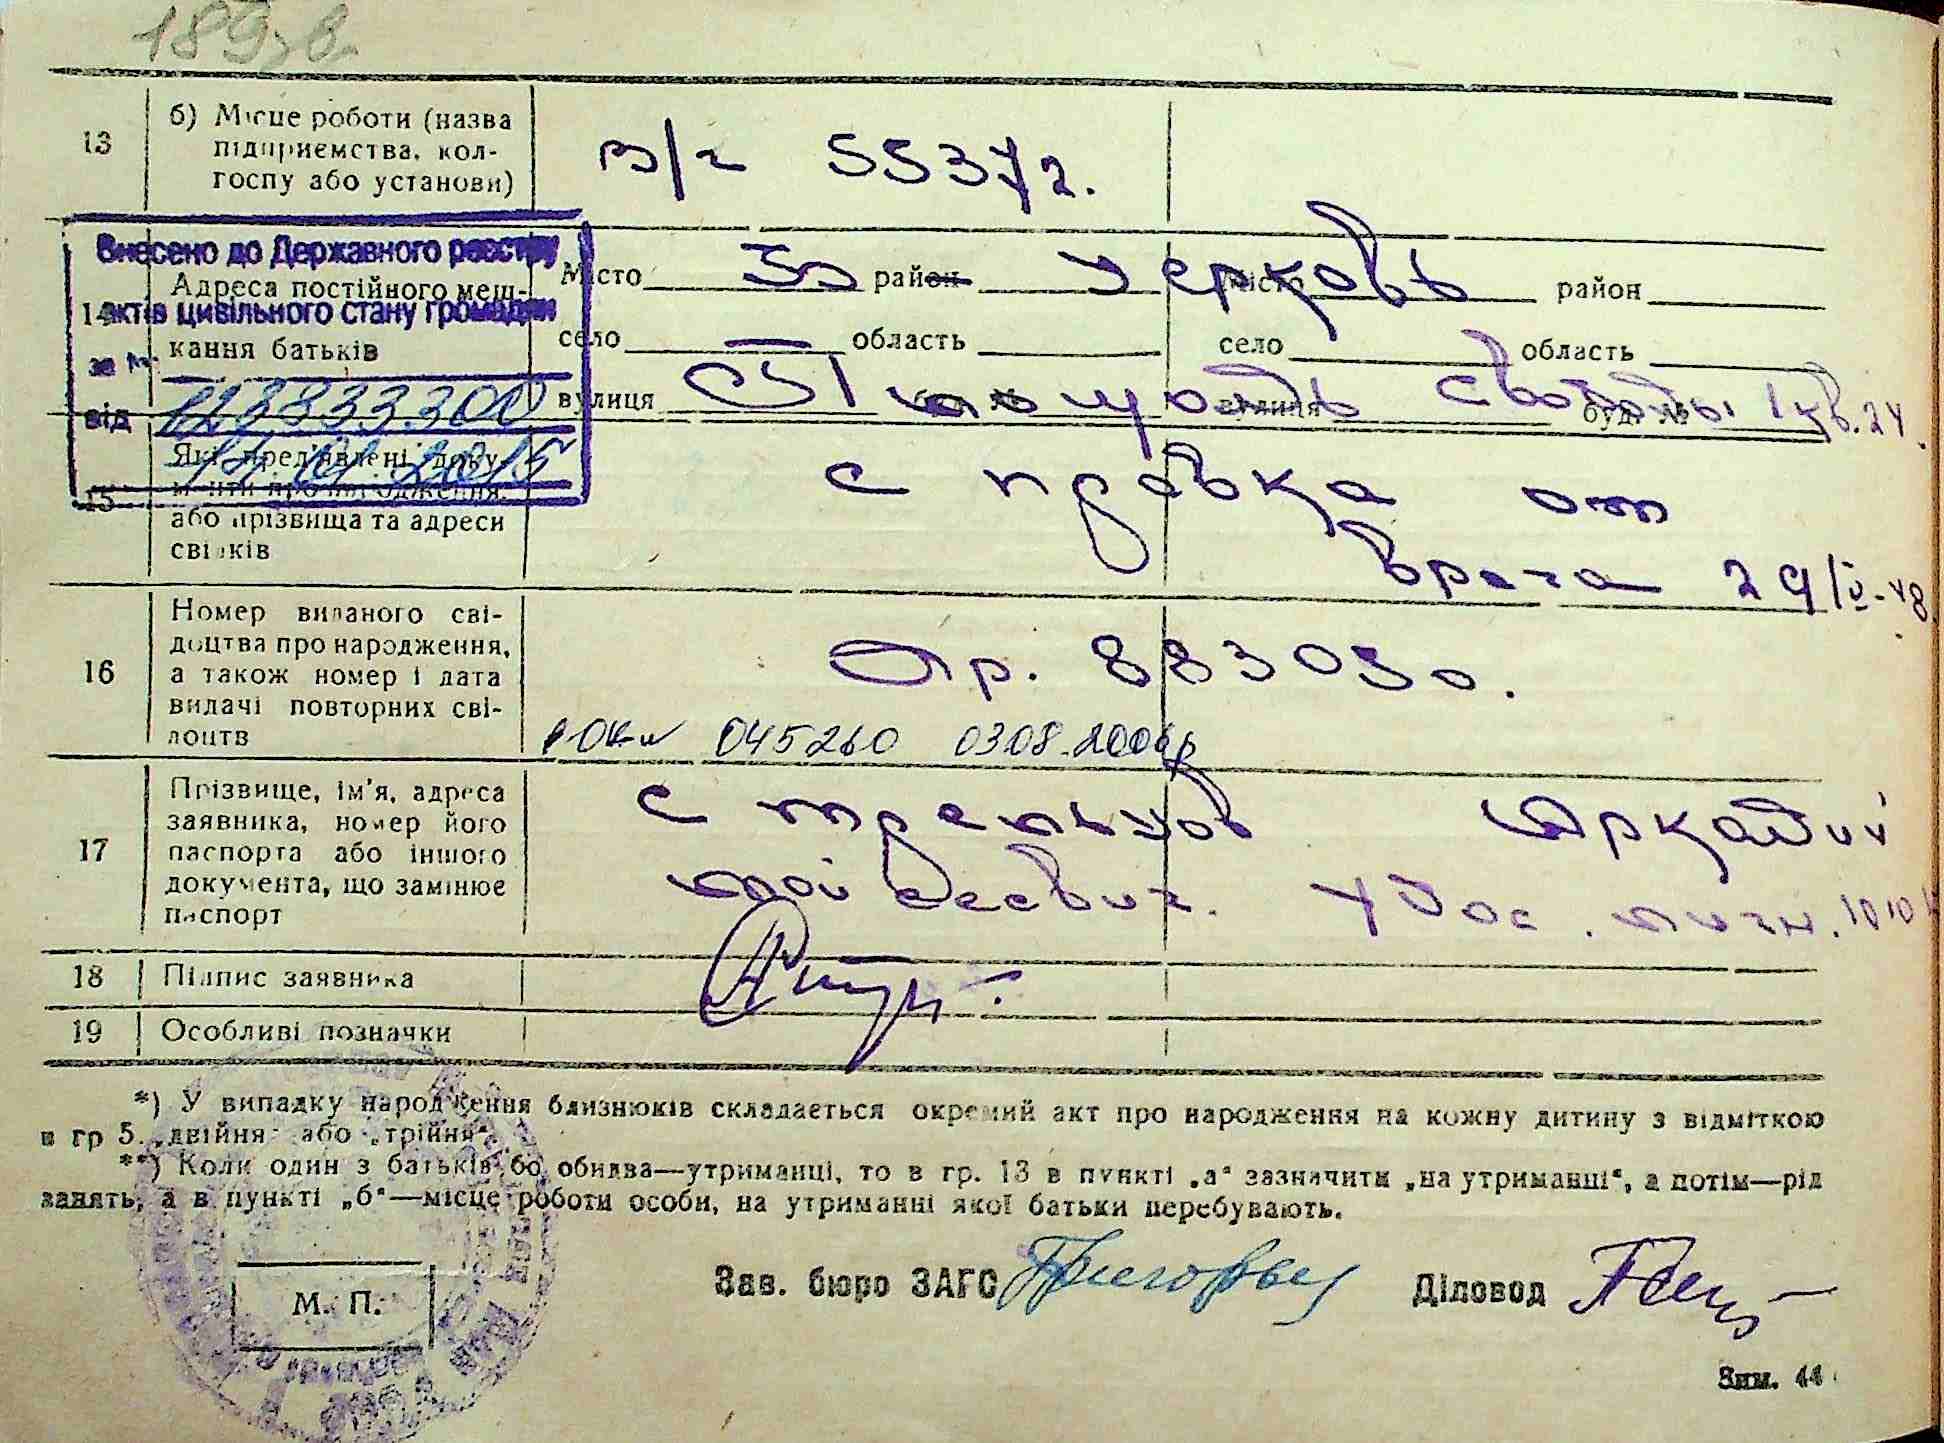 189 зв.
13 б) Місце роботи (назва
підприємства, кол-
госпу або установи)
в/ч 55372.
Внесено до Державного реєстру
актів цивільного стану громадян
за №
від
14 Адреса постійного меш-
кання батьків
Місто район Церковь Місто район
село — область село область
вулиця Площадь Свободы 1 кв. 24. вулиця буд. №
15 Які пред'явлені доку-
менти про народження,
або прізвища та адреси
свідків
справка от
врача 29/IV-48
16 Номер виданого сві-
доцтва про народження,
а також номер і дата
видачі повторних сві-
доцтв
045260 03.08.2006р
17 Прізвище, ім'я, адреса
заявника, номер його
паспорта або іншого
документа, що замінює
паспорт
Стрельцов Аркадий
Мойсеевич. Удос. личн.
18 Підпис заявника
19 Особливі позначки
*) У випадку народження близнюків складається окремий акт про народження на кожну дитину з відміткою
в гр 5. „двійня" або „трійня".
**) Коли один з батьків бо обидва—утриманці, то в гр. 13 в пункті „а" зазначити „на утриманні", а потім—рід
занять, а в пункті „б"—місце роботи особи, на утриманні якої батьки перебувають.
М. П.
Зав. бюро ЗАГС Діловод
Зам. 44